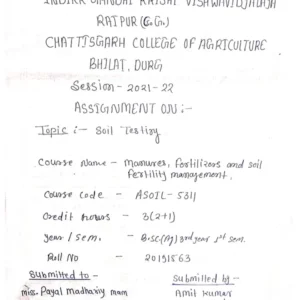 INDIRA GANDHI KRISHI VISHWAVIDJALAJA
RAIPUR (C.G.)
CHATTISGARH COLLEGE OF AGRICULTURE
BHILAI, DURG
Session - 2021-22
ASSIGNMENT ON :-
Topic :- Soil Testing
Course Name - Manures, fertilizers and soil
fertility management.
Course Code - ASOIL- 5311
Credit hours - 3(2+1)
year / sem. - B.SC.(Ag) 3rd year 1st sem.
Roll No - 20191563
Submitted to -
miss. Payal Madhariy mam
Submitted by -
Amit Kumar